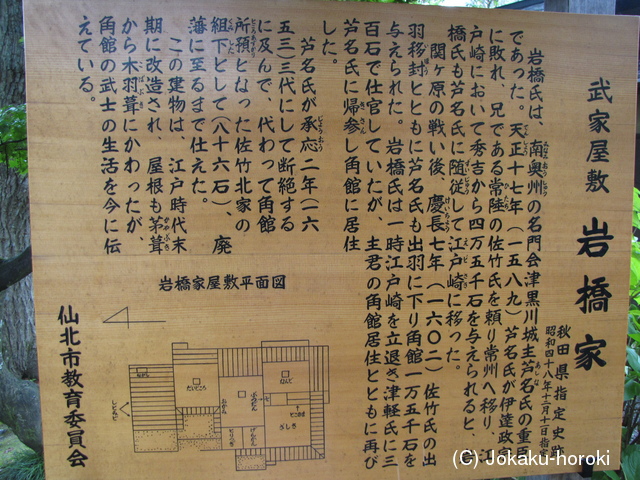 武家屋敷 岩橋家
秋田県指定史跡
昭和四十八年十二月十日指定
岩橋氏は、南奥州の名門会津黒川城主芦名氏の重臣
であった。天正十七年(一五八九)芦名氏が伊達政宗
に敗れ、兄である常陸の佐竹氏を頼り常州へ移り、江
戸崎において秀吉から四万五千石を与えられると、岩
橋氏も芦名氏に随従して江戸崎に移った。
関ヶ原の戦い後、慶長七年(一六〇二)佐竹氏の出
羽移封とともに芦名氏も出羽に下り角館一万五千石を
与えられた。岩橋氏は一時江戸崎を立退き津軽氏に三
百石で仕官していたが、主君の角館居住とともに再び
芦名氏に帰参し角館に居住
した。
芦名氏が承応二年(一六
五三)三代にして断絶する
に及んで、代わって角館の
所預となった佐竹北家の
組下として(八十六石)、廃
藩に至るまで仕えた。
この建物は、江戸時代末
期に改造され、屋根も茅葺
から木羽葺にかわったが、
角館の武士の生活を今に伝
えている。
岩橋家屋敷平面図
なんど
だいどころ
ざしき
げんかん
仙北市教育委員会
(C) Jokaku-horoki